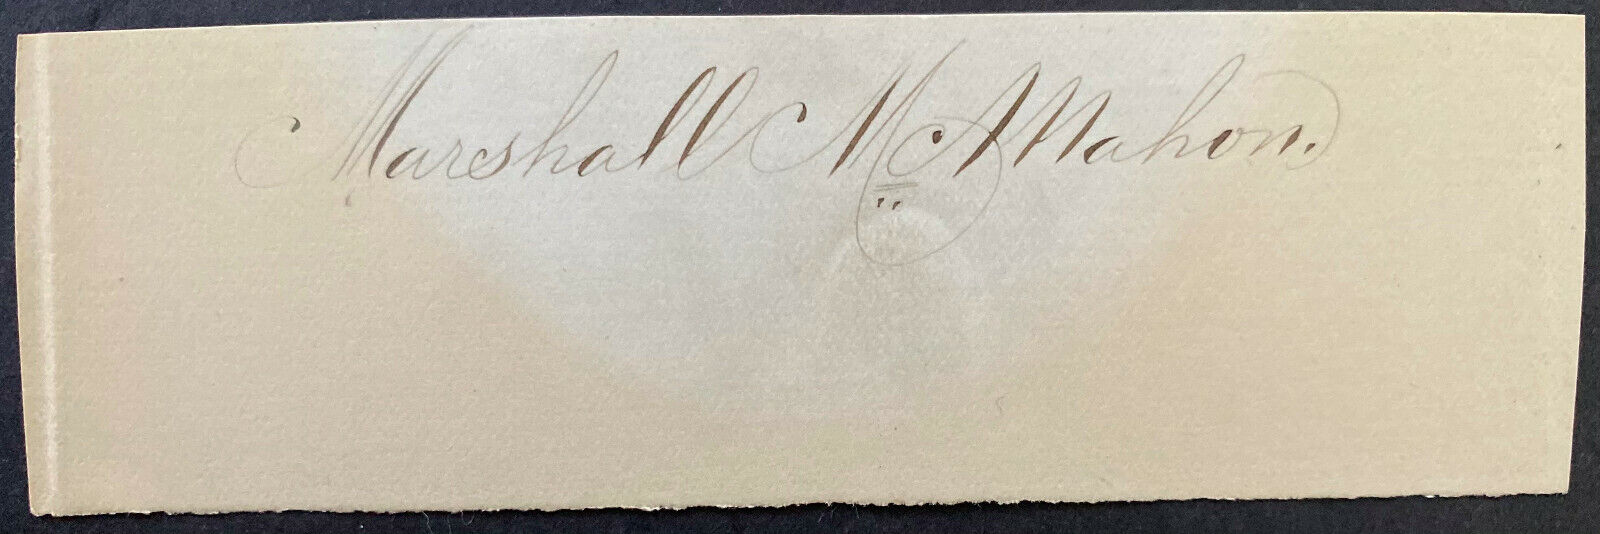 Marshall McMahon.